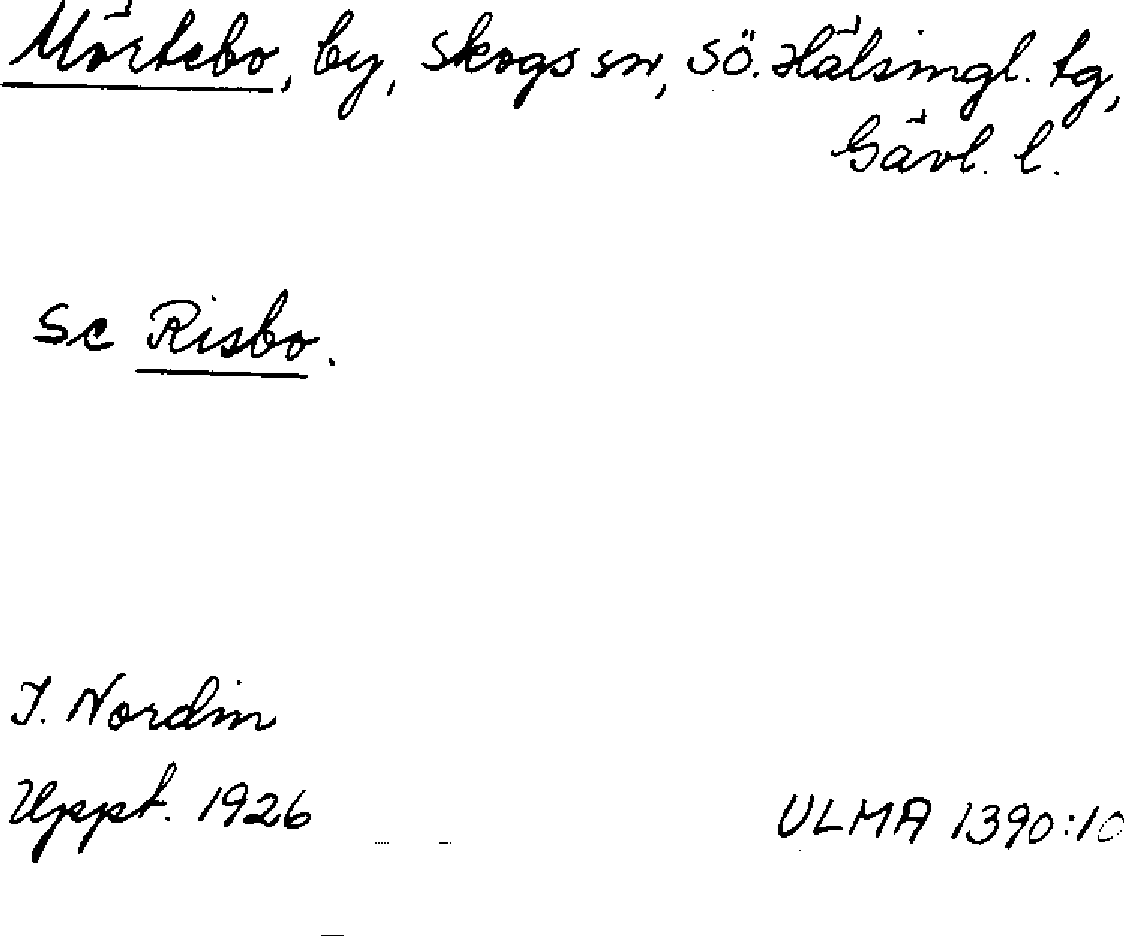 Mörtebo, by, Skogs sn, Sö. Hälsingl. tg,
Gävl. l.
Se Risbo.
I. Nordin
Uppt. 1926
ULMA 1390:10